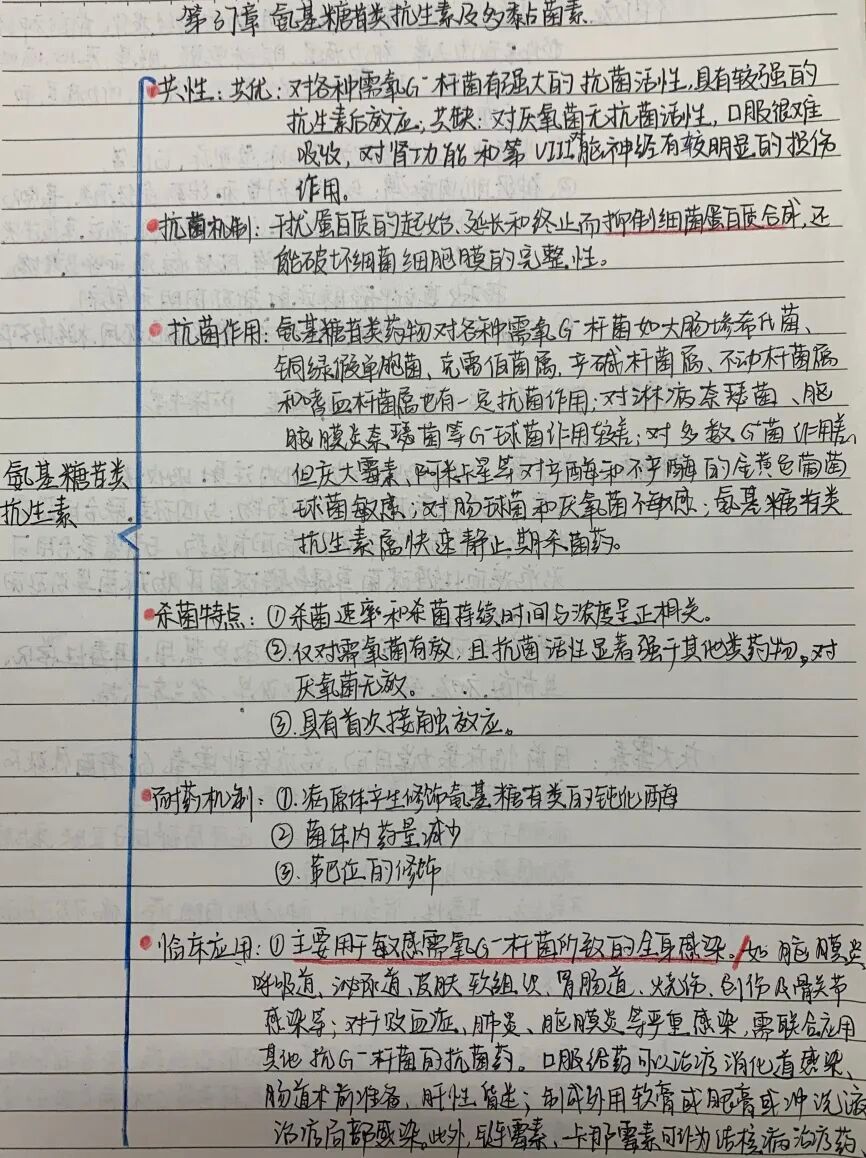 第37章 氨基糖苷类抗生素及多黏菌素
共性：共优：对各种需氧G⁻杆菌有强大的抗菌活性，具有较强的
抗生素后效应；共缺：对厌氧菌无抗菌活性，口服很难
吸收，对肾功能和第VIII脑神经有较明显的损伤
作用。
抗菌机制：干扰蛋白质的起始、延长和终止而抑制细菌蛋白质合成，还
能破坏细菌细胞膜的完整性。
抗菌作用：氨基糖苷类药物对各种需氧G⁻杆菌如大肠埃希氏菌、
铜绿假单胞菌、克雷伯菌属、产碱杆菌属、不动杆菌属
和嗜血杆菌属也有一定抗菌作用；对淋病奈瑟菌、脑
脑膜炎奈瑟菌等G⁻球菌作用较差；对多数G⁺菌作用差，
但庆大霉素、阿米卡星等对产酶和不产酶的金黄色葡萄
球菌敏感；对肠球菌和厌氧菌不敏感；氨基糖苷类
抗生素属快速静止期杀菌药。
氨基糖苷类
抗生素
杀菌特点：①杀菌速率和杀菌持续时间与浓度呈正相关。
②.仅对需氧菌有效，且抗菌活性显著强于其他类药物，对
厌氧菌无效。
③.具有首次接触效应。
耐药机制：①.病原体产生修饰氨基糖苷类的钝化酶
②菌体内药量减少
③.靶位的修饰
临床应用：①主要用于敏感需氧G⁻杆菌所致的全身感染。如脑膜炎
呼吸道、泌尿道、皮肤软组织、胃肠道、烧伤、创伤及骨关节
感染等；对于败血症、肺炎、脑膜炎等严重感染，需联合应用
其他抗G⁻杆菌的抗菌药。口服给药可以治疗消化道感染、
肠道术前准备、肝性昏迷；制成外用软膏或眼膏或冲洗液
治疗局部感染。此外，链霉素、卡那霉素可作为结核病治疗药